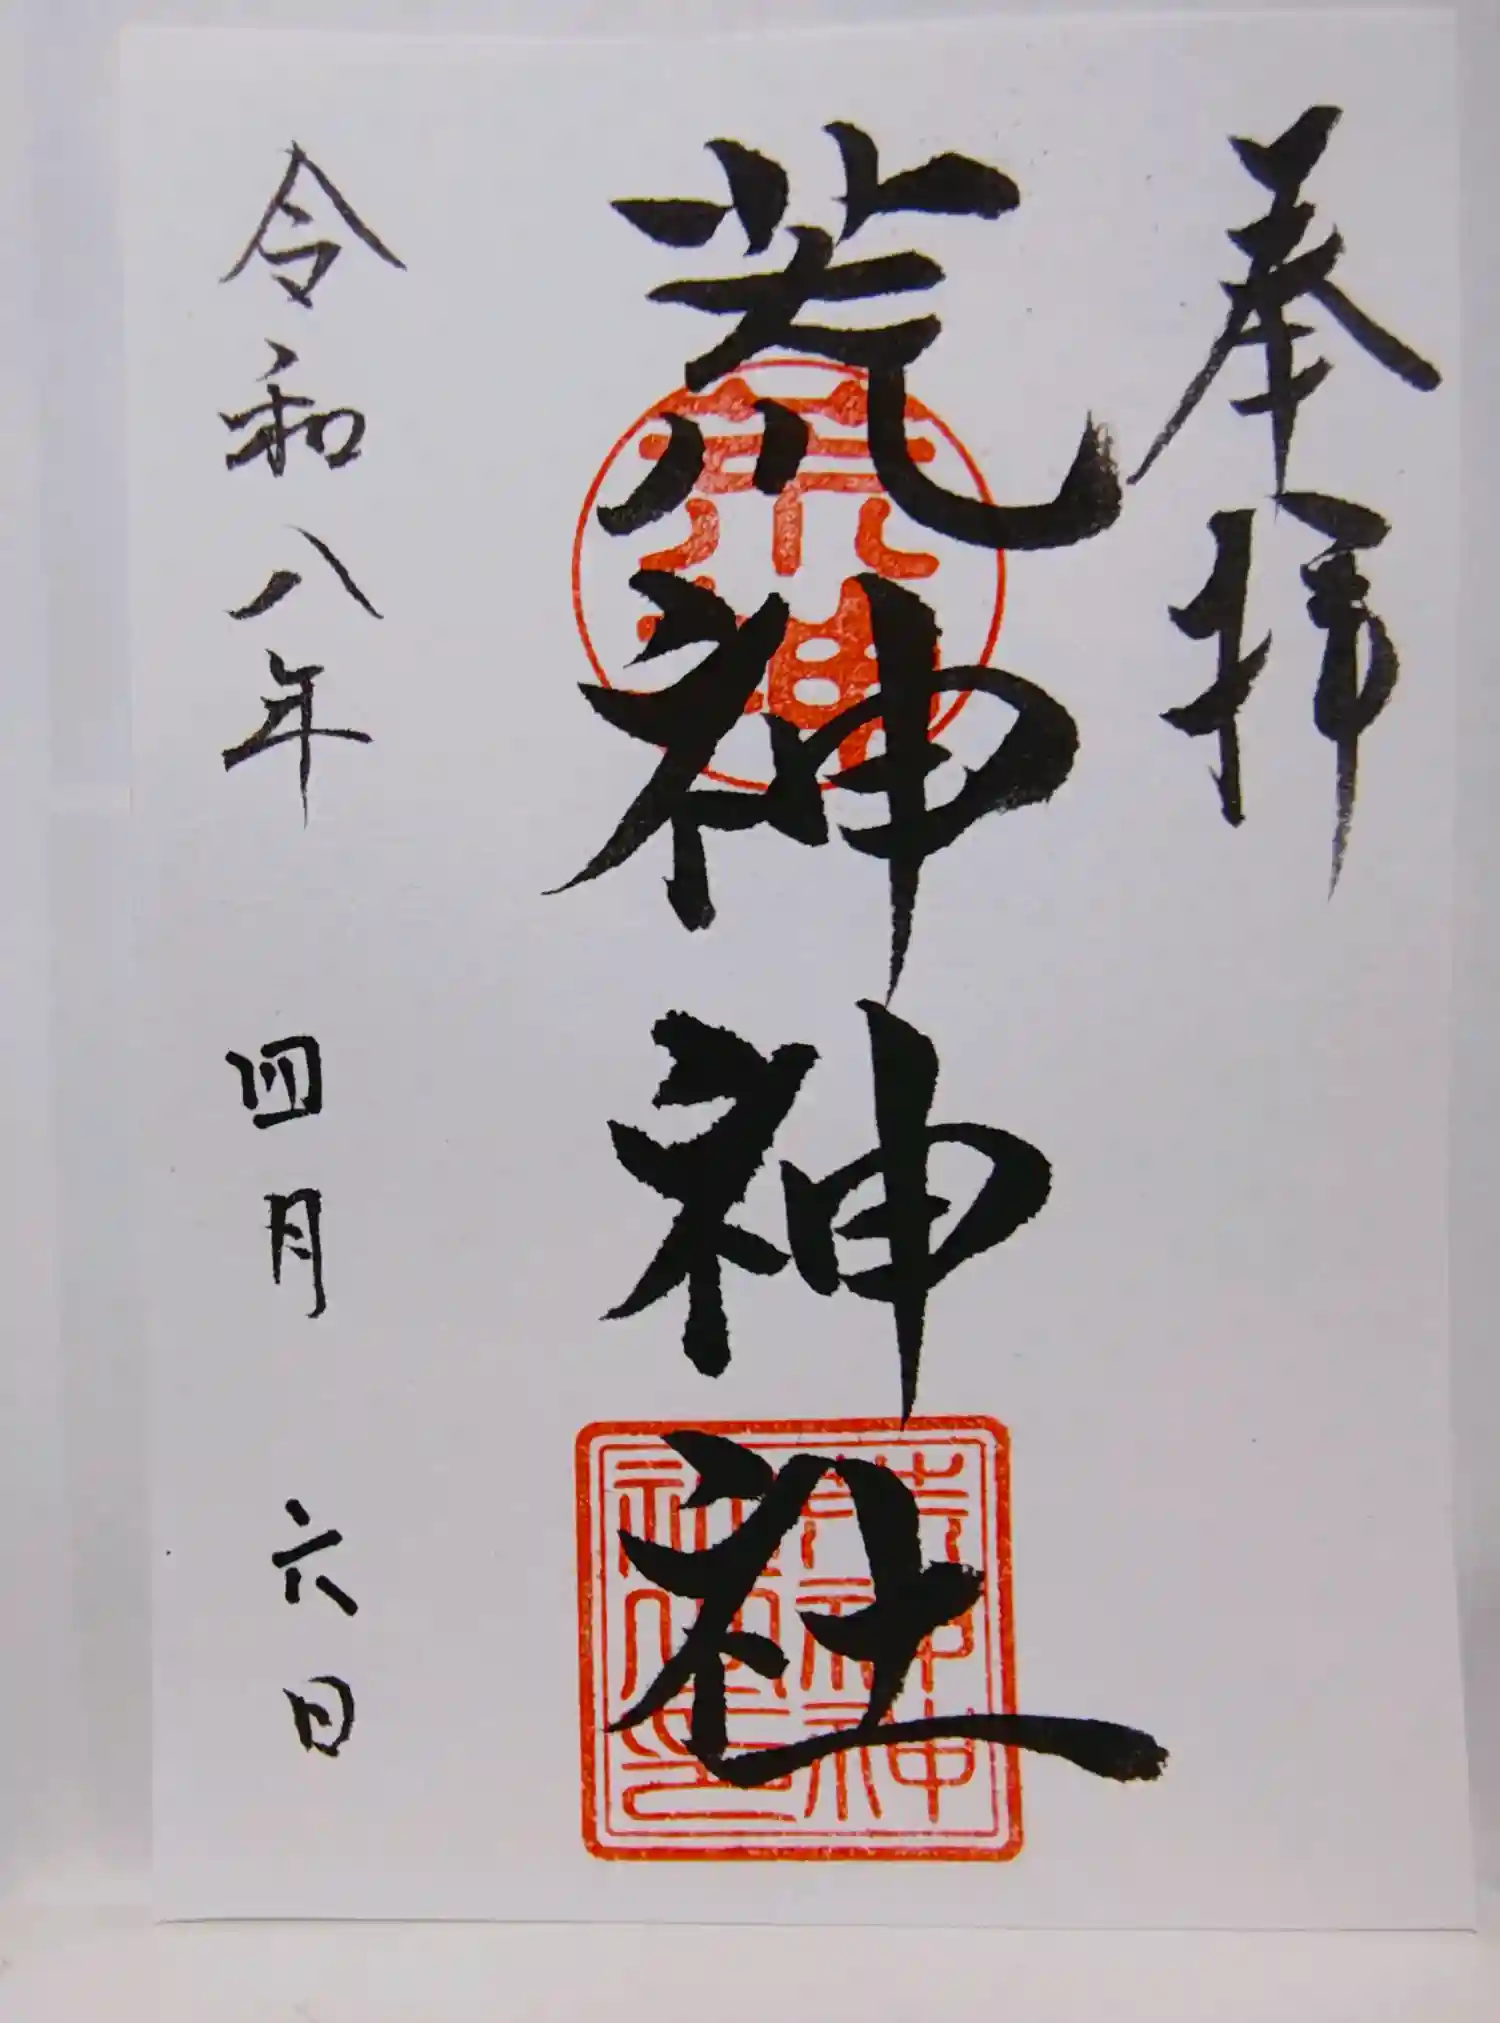 奉拝
荒神神社
荒神
荒神神
社之印
令和八年 四月 六日